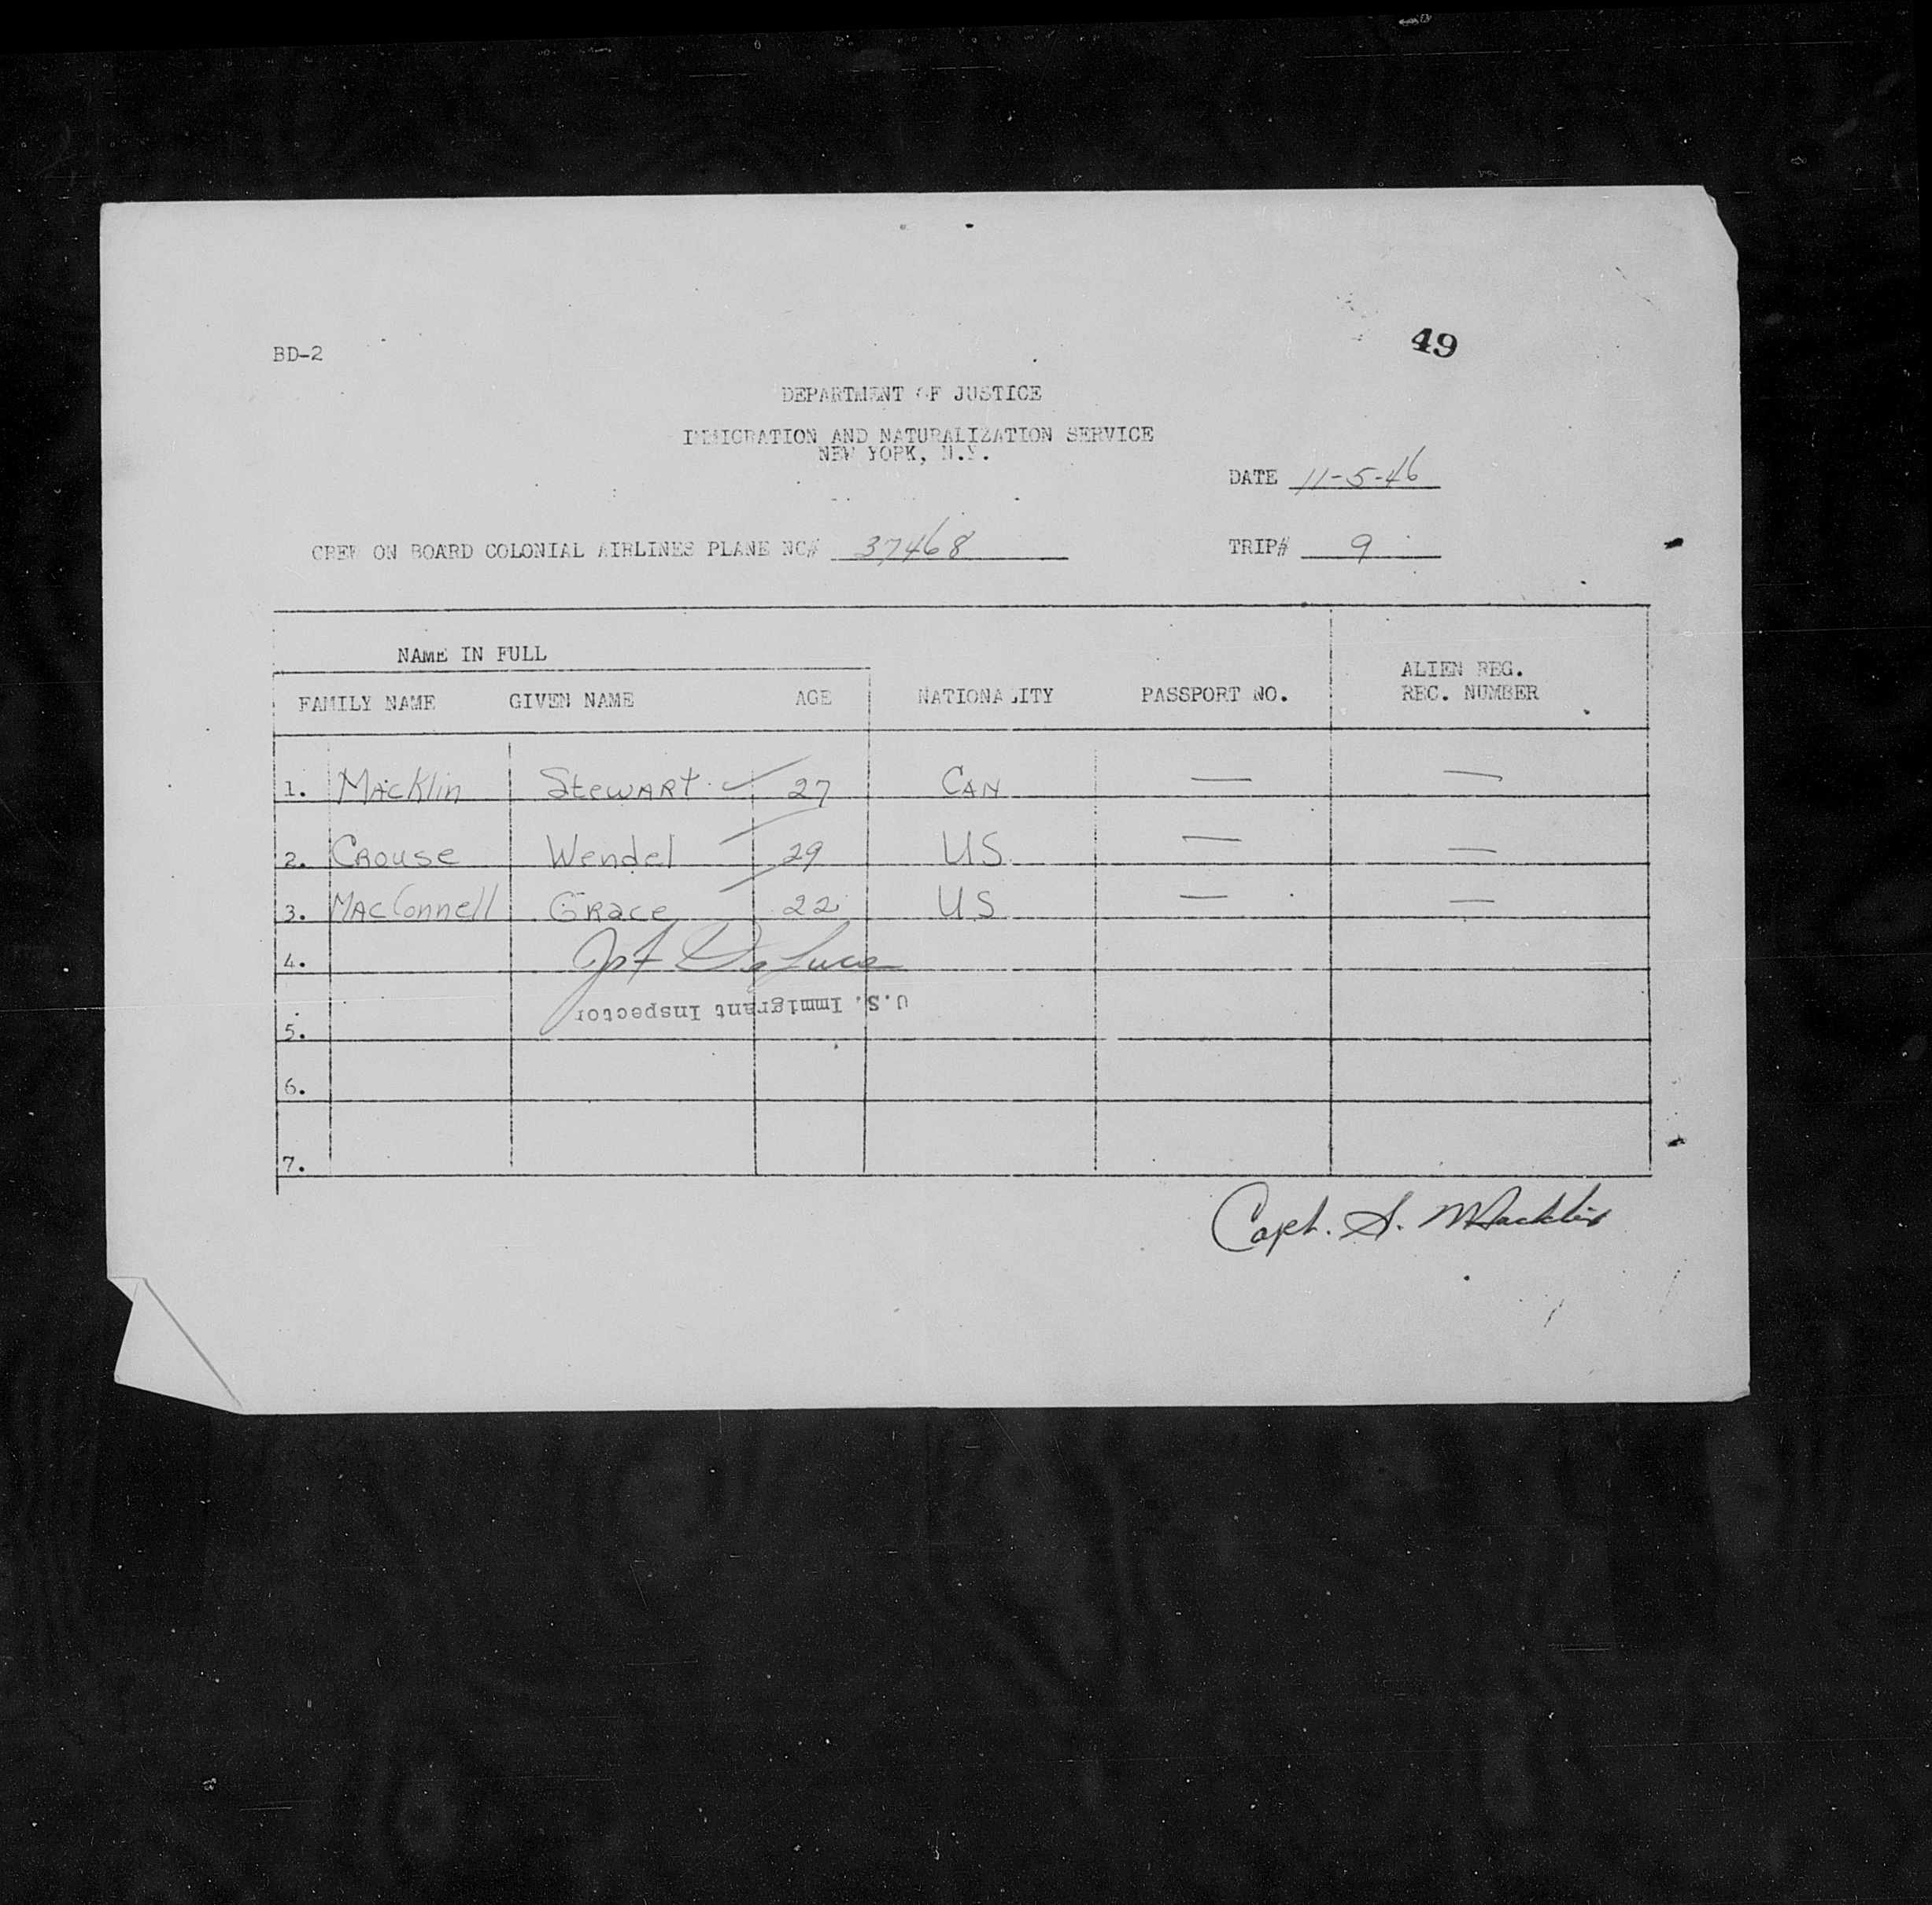 BD-2
49
DEPARTMENT OF JUSTICE
IMMIGRATION AND NATURALIZATION SERVICE
NEW YORK, N.Y.
DATE 11-5-46
CREW ON BOARD COLONIAL AIRLINES PLANE NC# 37468 TRIP# 9
NAME IN FULL
FAMILY NAME GIVEN NAME AGE NATIONALITY PASSPORT NO. ALIEN REG. REC. NUMBER
1. Macklin Stewart ✓ 27 CAN — —
2. Crouse Wendel 29 US — —
3. MacConnell Grace 22 US — —
4. DeLuca
U.S. Immigrant Inspector
5.
6.
7.
Capt. S. Macklin